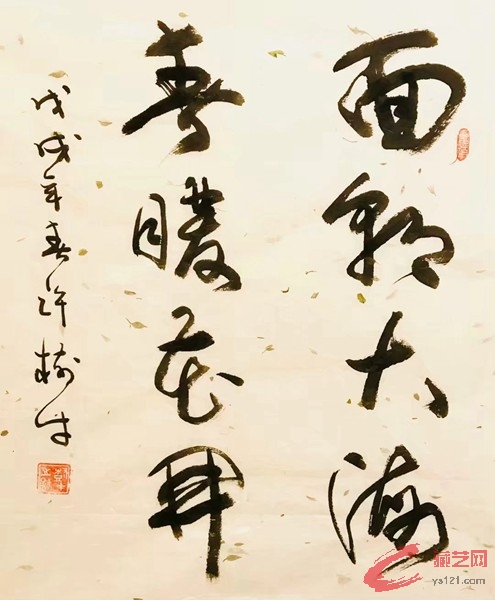 面朝大海
春暖花開
戊戌年春許樹
藏艺网
ys121.com